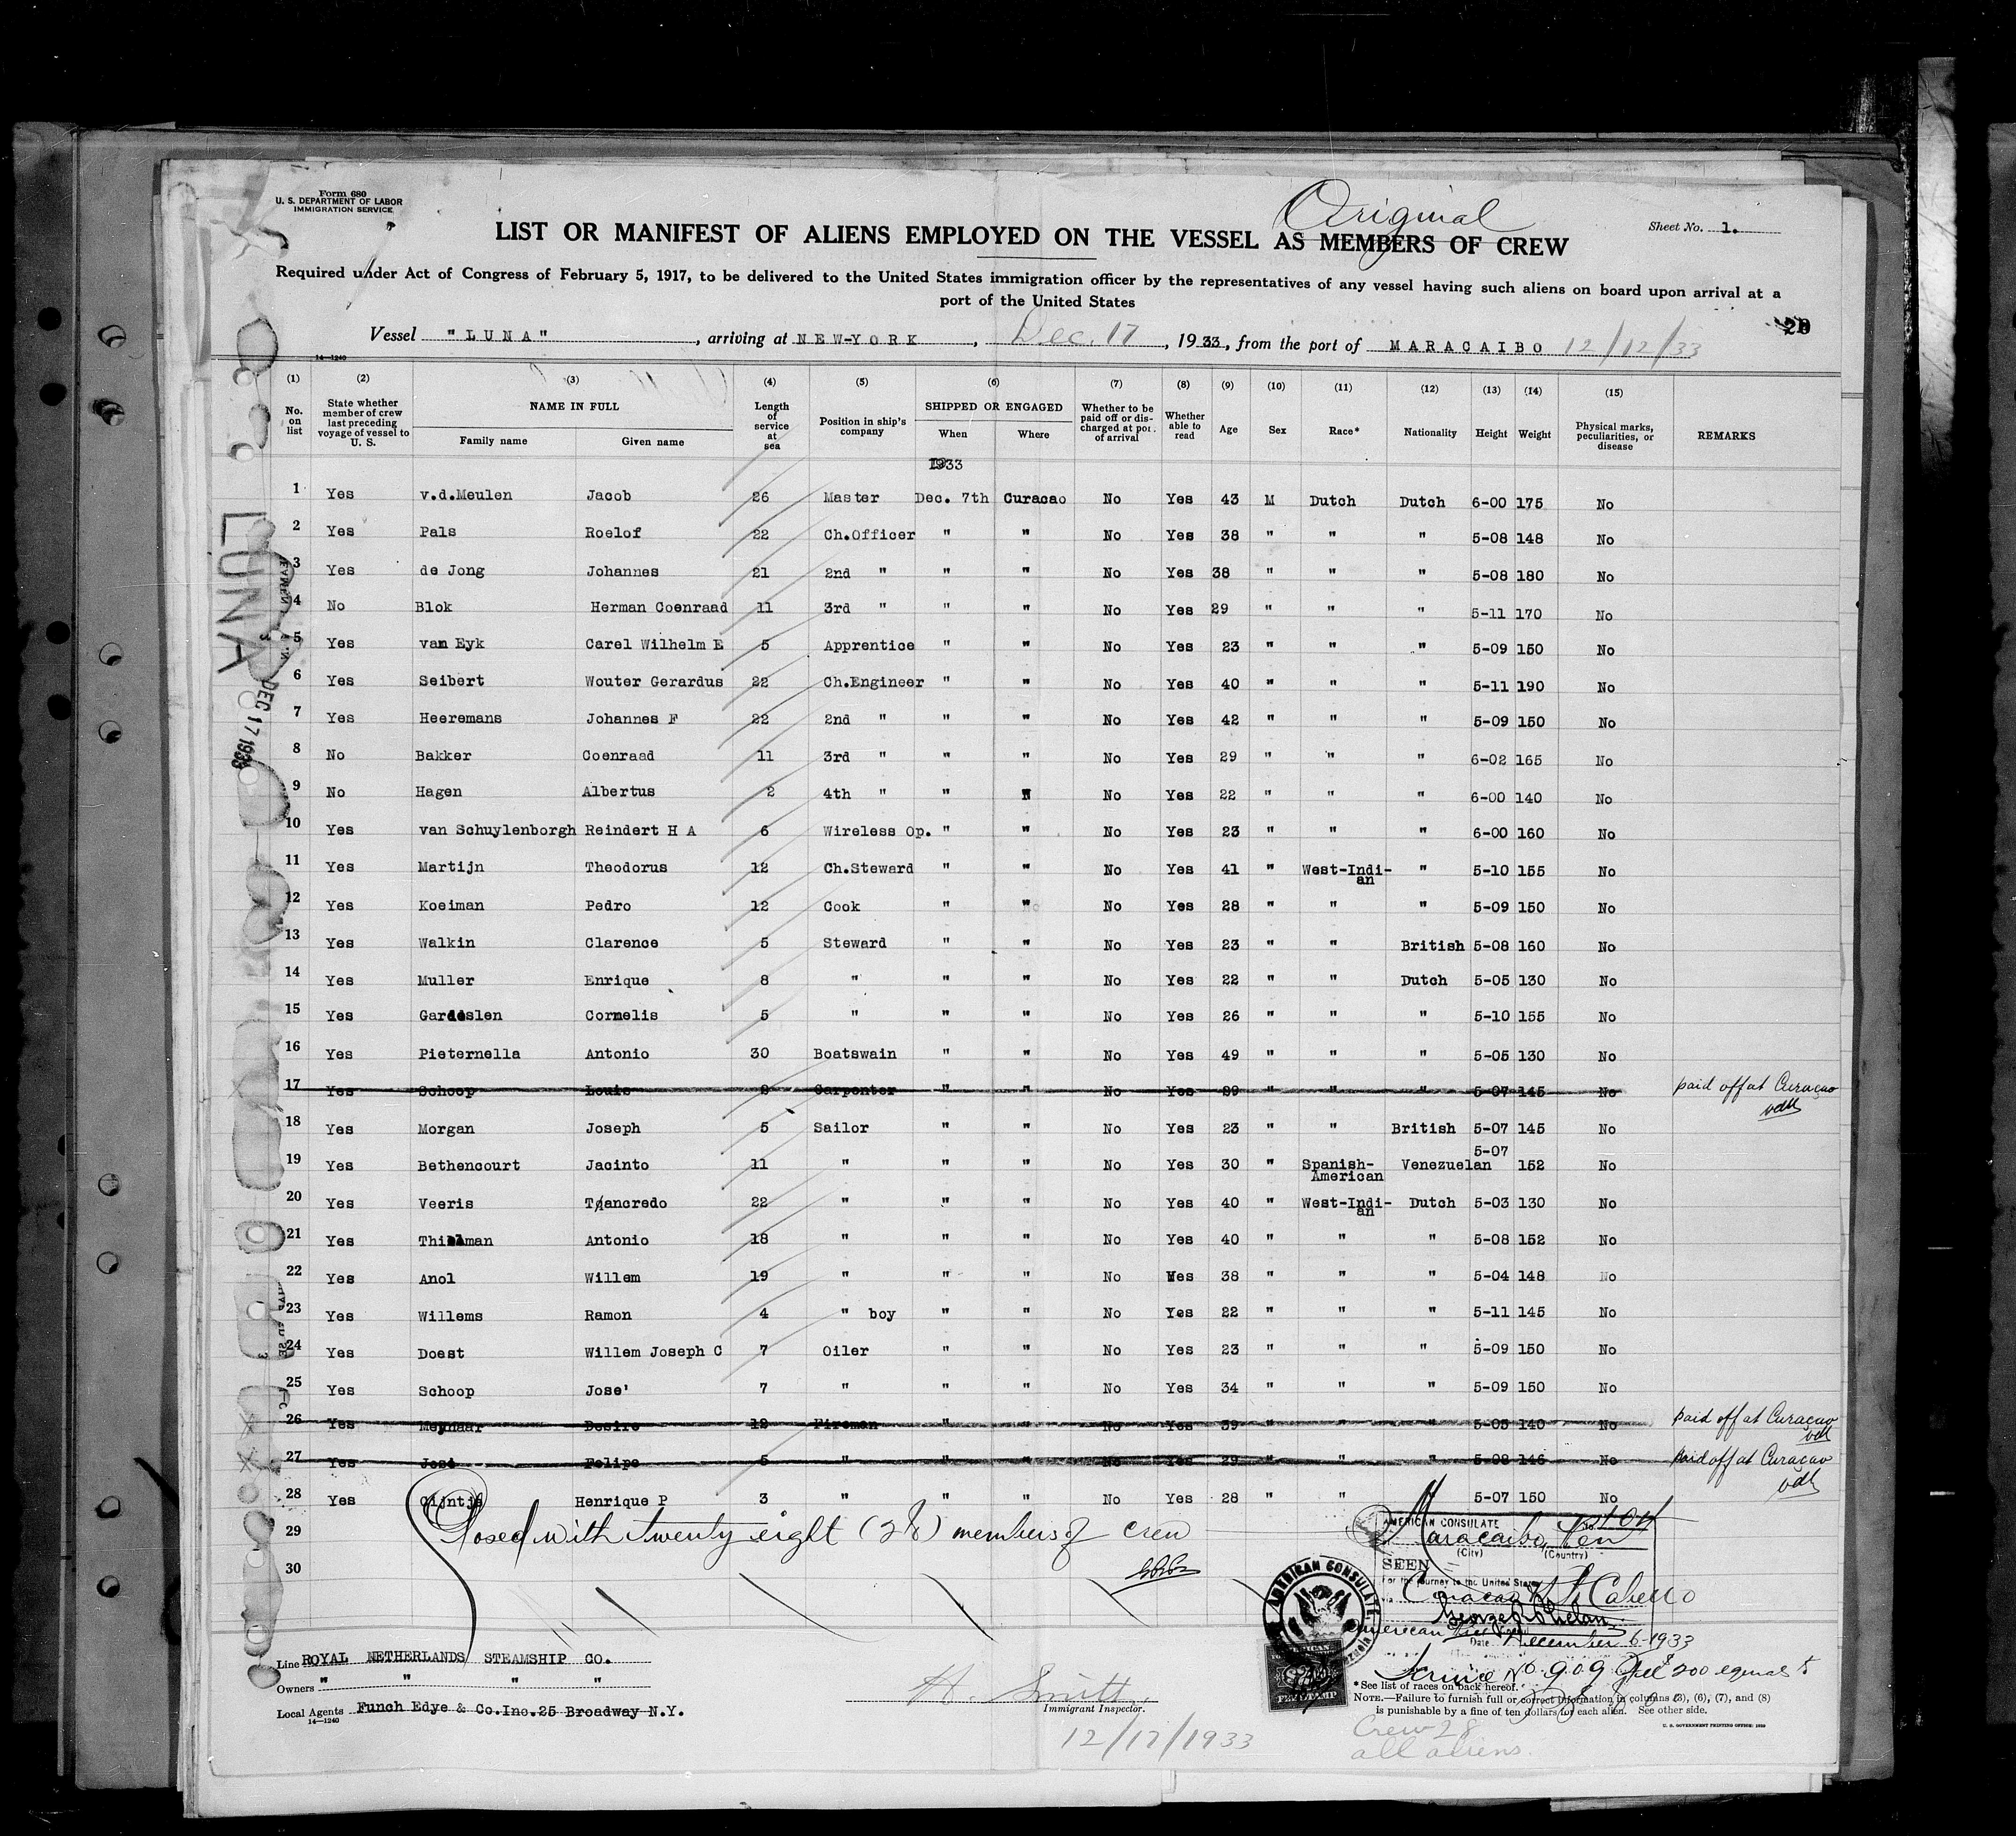 Form 680
U. S. DEPARTMENT OF LABOR
IMMIGRATION SERVICE
Original
Sheet No. 1.
LIST OR MANIFEST OF ALIENS EMPLOYED ON THE VESSEL AS MEMBERS OF CREW
Required under Act of Congress of February 5, 1917, to be delivered to the United States immigration officer by the representatives of any vessel having such aliens on board upon arrival at a
port of the United States
Vessel "LUNA", arriving at NEW-YORK, Dec. 17, 1933, from the port of MARACAIBO 12/12/33
14—1240
(1) (2) (3) (4) (5) (6) (7) (8) (9) (10) (11) (12) (13) (14) (15)
No. on list | State whether member of crew last preceding voyage of vessel to U. S. | NAME IN FULL Family name Given name | Length of service at sea | Position in ship's company | SHIPPED OR ENGAGED When Where | Whether to be paid off or discharged at port of arrival | Whether able to read | Age | Sex | Race* | Nationality | Height | Weight | Physical marks, peculiarities, or disease | REMARKS
1933
1 Yes v.d.Meulen Jacob 26 Master Dec. 7th Curacao No Yes 43 M Dutch Dutch 6-00 175 No
2 Yes Pals Roelof 22 Ch.Officer " " No Yes 38 " " " 5-08 148 No
3 Yes de Jong Johannes 21 2nd " " " No Yes 38 " " " 5-08 180 No
4 No Blok Herman Coenraad 11 3rd " " " No Yes 29 " " " 5-11 170 No
5 Yes van Eyk Carel Wilhelm E 5 Apprentice " " No Yes 23 " " " 5-09 150 No
6 Yes Seibert Wouter Gerardus 22 Ch.Engineer " " No Yes 40 " " " 5-11 190 No
7 Yes Heeremans Johannes F 22 2nd " " " No Yes 42 " " " 5-09 150 No
8 No Bakker Coenraad 11 3rd " " " No Yes 29 " " " 6-02 165 No
9 No Hagen Albertus 2 4th " " " No Yes 22 " " " 6-00 140 No
10 Yes van Schuylenborgh Reindert H A 6 Wireless Op. " " No Yes 23 " " " 6-00 160 No
11 Yes Martijn Theodorus 12 Ch.Steward " " No Yes 41 " West-Indian " 5-10 155 No
12 Yes Koeiman Pedro 12 Cook " " No Yes 28 " " " 5-09 150 No
13 Yes Walkin Clarence 5 Steward " " No Yes 23 " " British 5-08 160 No
14 Yes Muller Enrique 8 " " " No Yes 22 " " Dutch 5-05 130 No
15 Yes Cornelis 5 " " " No Yes 26 " " " 5-10 155 No
16 Yes Pieternella Antonio 30 Boatswain " " No Yes 49 " " " 5-05 130 No
17 Yes Schoop Louis 8 Carpenter " " No Yes 29 " " " 5-07 145 No paid off at Curaçao vdM
18 Yes Morgan Joseph 5 Sailor " " No Yes 23 " " British 5-07 145 No
19 Yes Bethencourt Jacinto 11 " " " No Yes 30 " Spanish-American Venezuelan 5-07 152 No
20 Yes Veeris Tancredo 22 " " " No Yes 40 " West-Indian Dutch 5-03 130 No
21 Yes Thielman Antonio 18 " " " No Yes 40 " " " 5-08 152 No
22 Yes Anol Willem 19 " " " No Yes 38 " " " 5-04 148 No
23 Yes Willems Ramon 4 " boy " " No Yes 22 " " " 5-11 145 No
24 Yes Doest Willem Joseph C 7 Oiler " " No Yes 23 " " " 5-09 150 No
25 Yes Schoop Jose' 7 " " " No Yes 34 " " " 5-09 150 No
26 Yes Meynaar Desire 12 Fireman " " No Yes 39 " " " 5-05 140 No paid off at Curaçao vdM
27 Yes José Felipe 5 " " " No Yes 29 " " " 5-08 146 No Paid off at Curaçao vdM
28 Yes Cijntje Henrique P 3 " " " No Yes 28 " " 5-07 150 No
29
30
Closed with twenty eight (28) members of crew
LUNA
DEC 17 1933
AMERICAN CONSULATE
Maracaibo, Ven
(City) (Country)
SEEN
For the journey to the United States
via Curacao & Pto Cabello
American Vice Consul
Date December 6-1933
Service No. 909
AMERICAN CONSULATE
FEE STAMP
Line ROYAL NETHERLANDS STEAMSHIP CO.
Owners " " " "
Local Agents Funch Edye & Co.Inc.25 Broadway N.Y.
14—1240
H. Smith
Immigrant Inspector.
12/17/1933
*See list of races on back hereof.
NOTE.—Failure to furnish full or correct information in columns (3), (6), (7), and (8)
is punishable by a fine of ten dollars for each alien. See other side.
U. S. GOVERNMENT PRINTING OFFICE
Crew 28
all aliens.